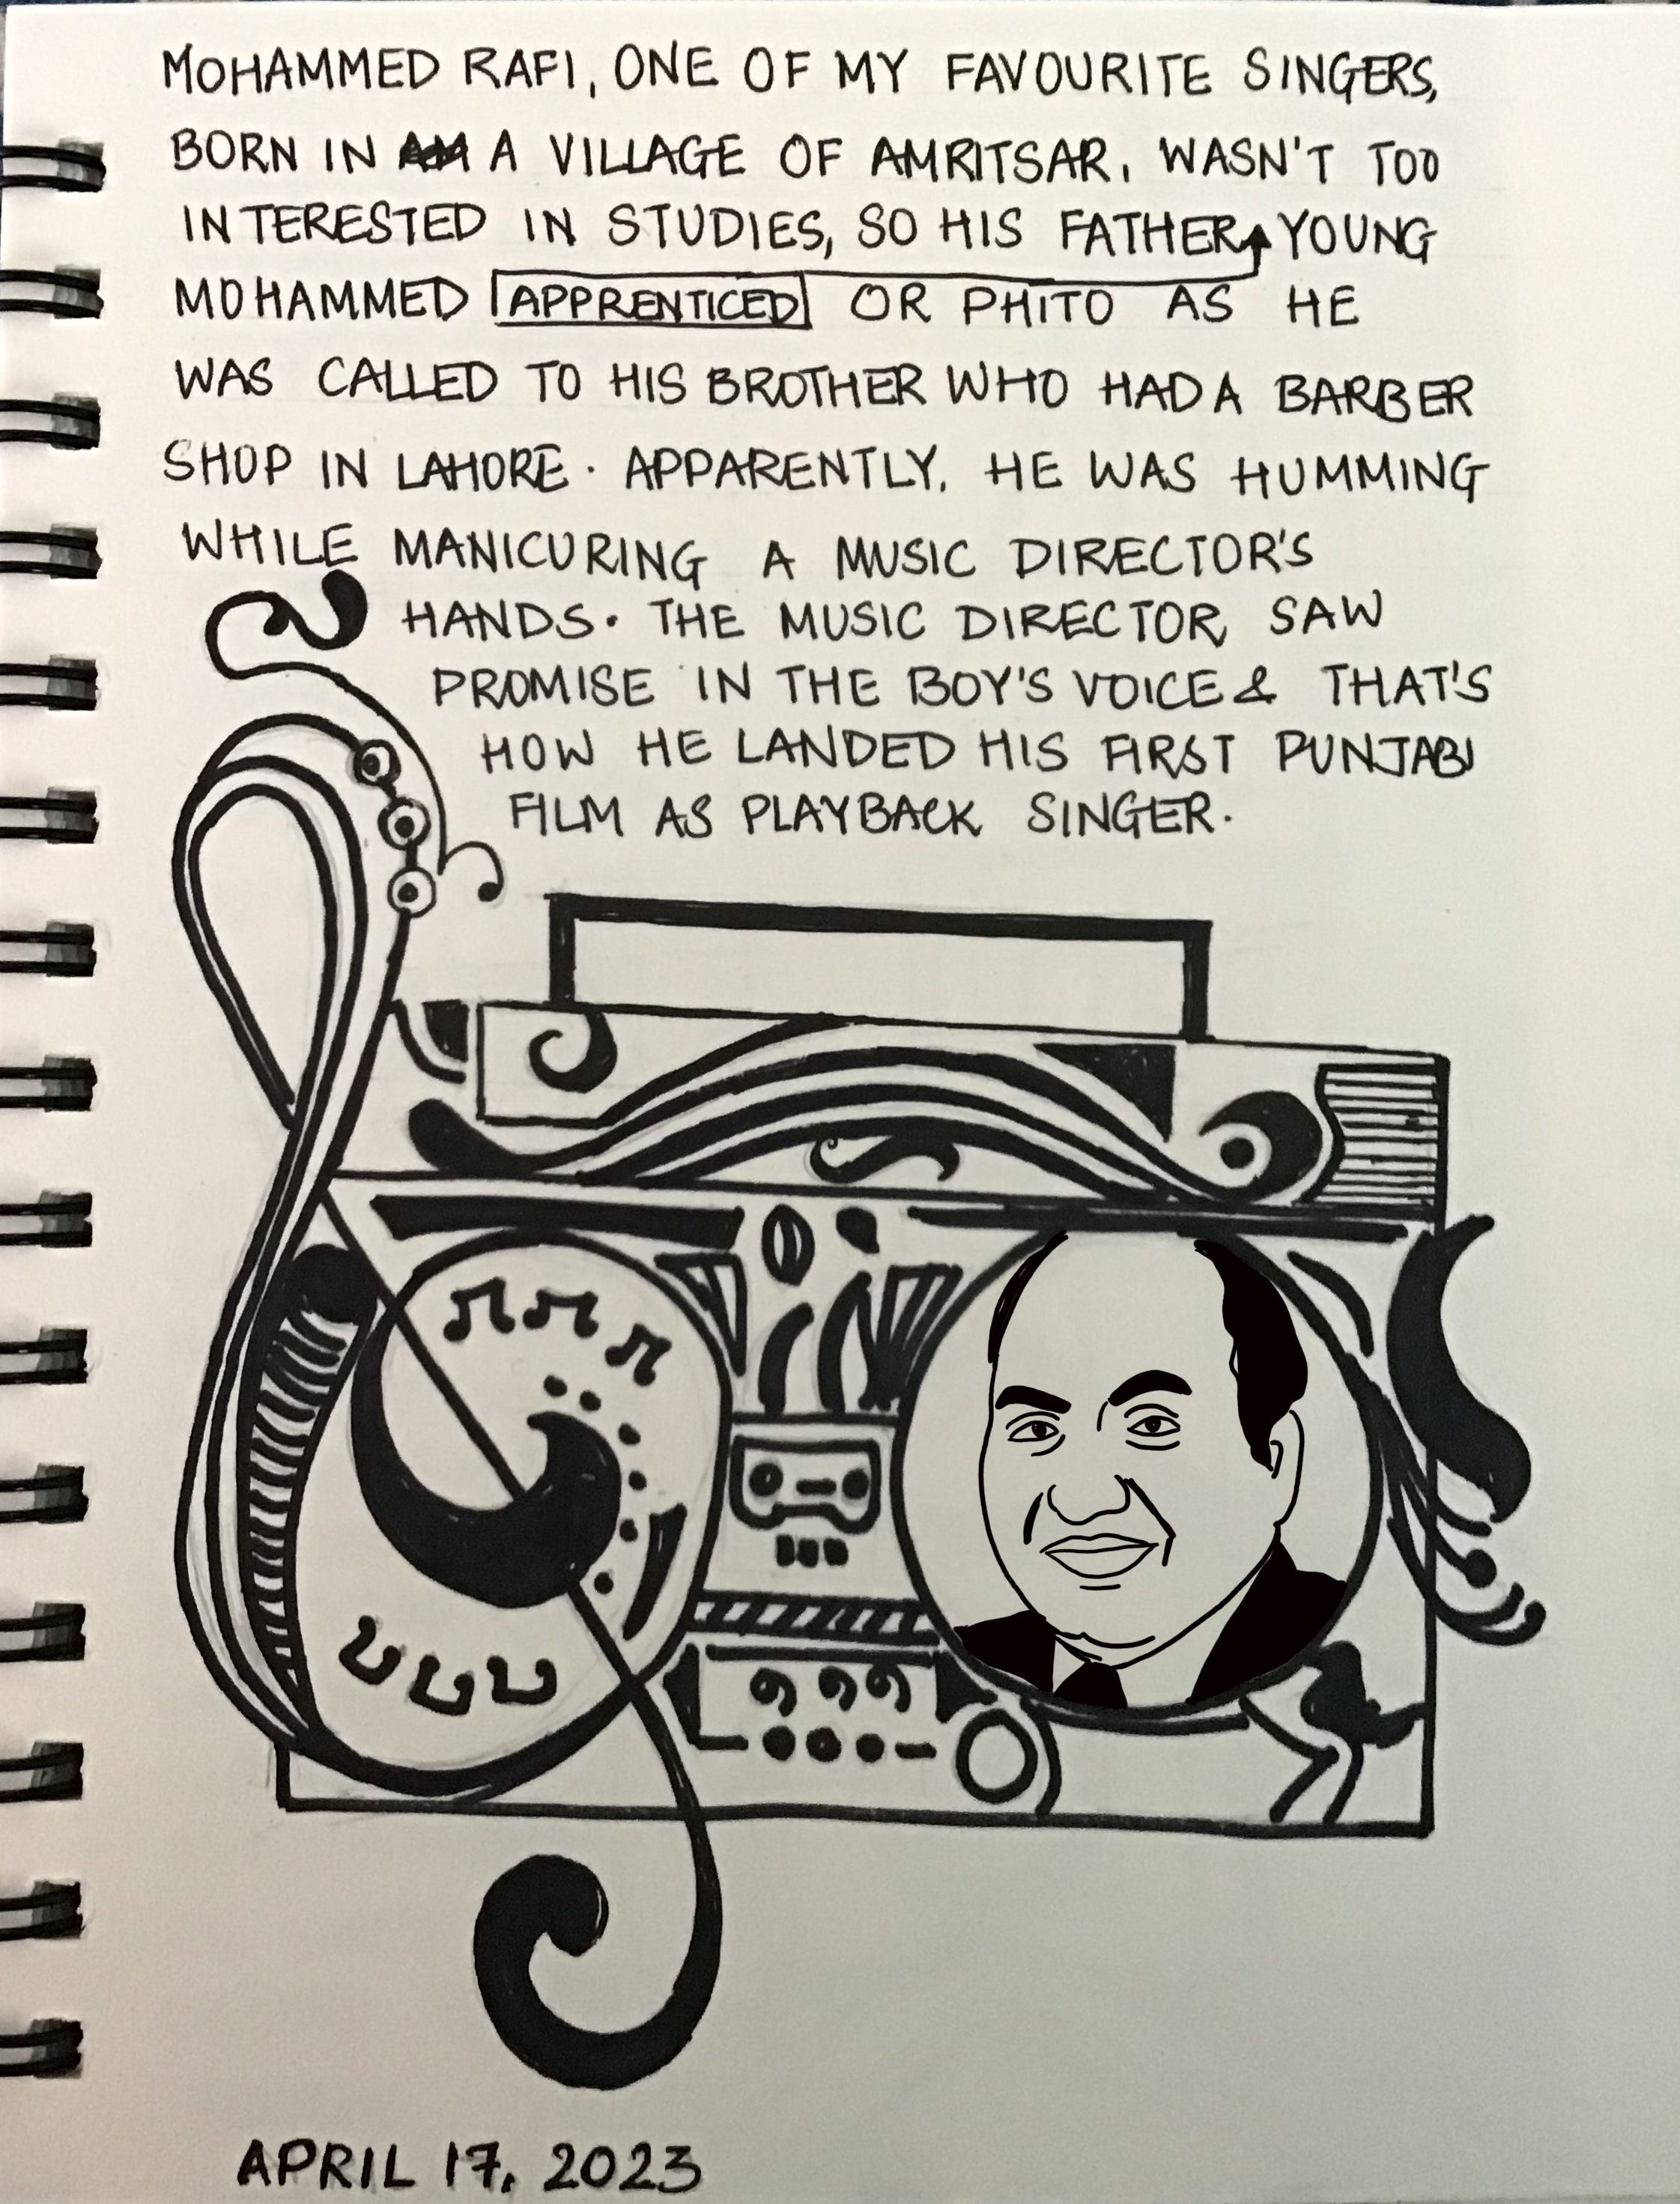 MOHAMMED RAFI, ONE OF MY FAVOURITE SINGERS,
BORN IN A VILLAGE OF AMRITSAR, WASN'T TOO
INTERESTED IN STUDIES, SO HIS FATHER YOUNG
MOHAMMED APPRENTICED OR PHITO AS HE
WAS CALLED TO HIS BROTHER WHO HAD A BARBER
SHOP IN LAHORE. APPARENTLY, HE WAS HUMMING
WHILE MANICURING A MUSIC DIRECTOR'S
HANDS. THE MUSIC DIRECTOR SAW
PROMISE IN THE BOY'S VOICE & THAT'S
HOW HE LANDED HIS FIRST PUNJABI
FILM AS PLAYBACK SINGER.
APRIL 17, 2023